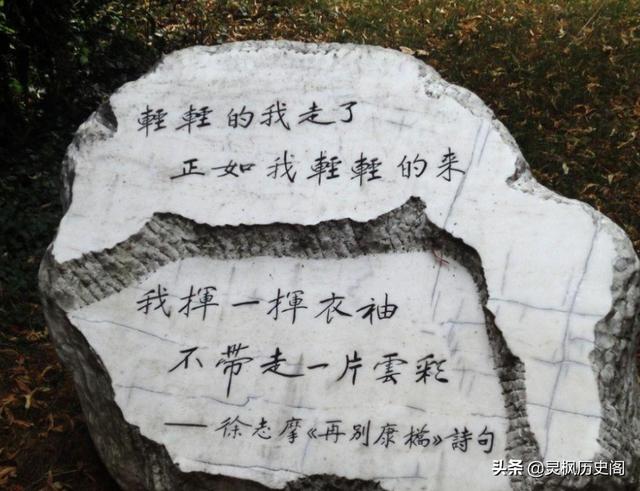 輕輕的我走了
正如我輕輕的来
我揮一揮衣袖
不帶走一片雲彩
——徐志摩《再別康橋》詩句
头条 @灵枫历史阁